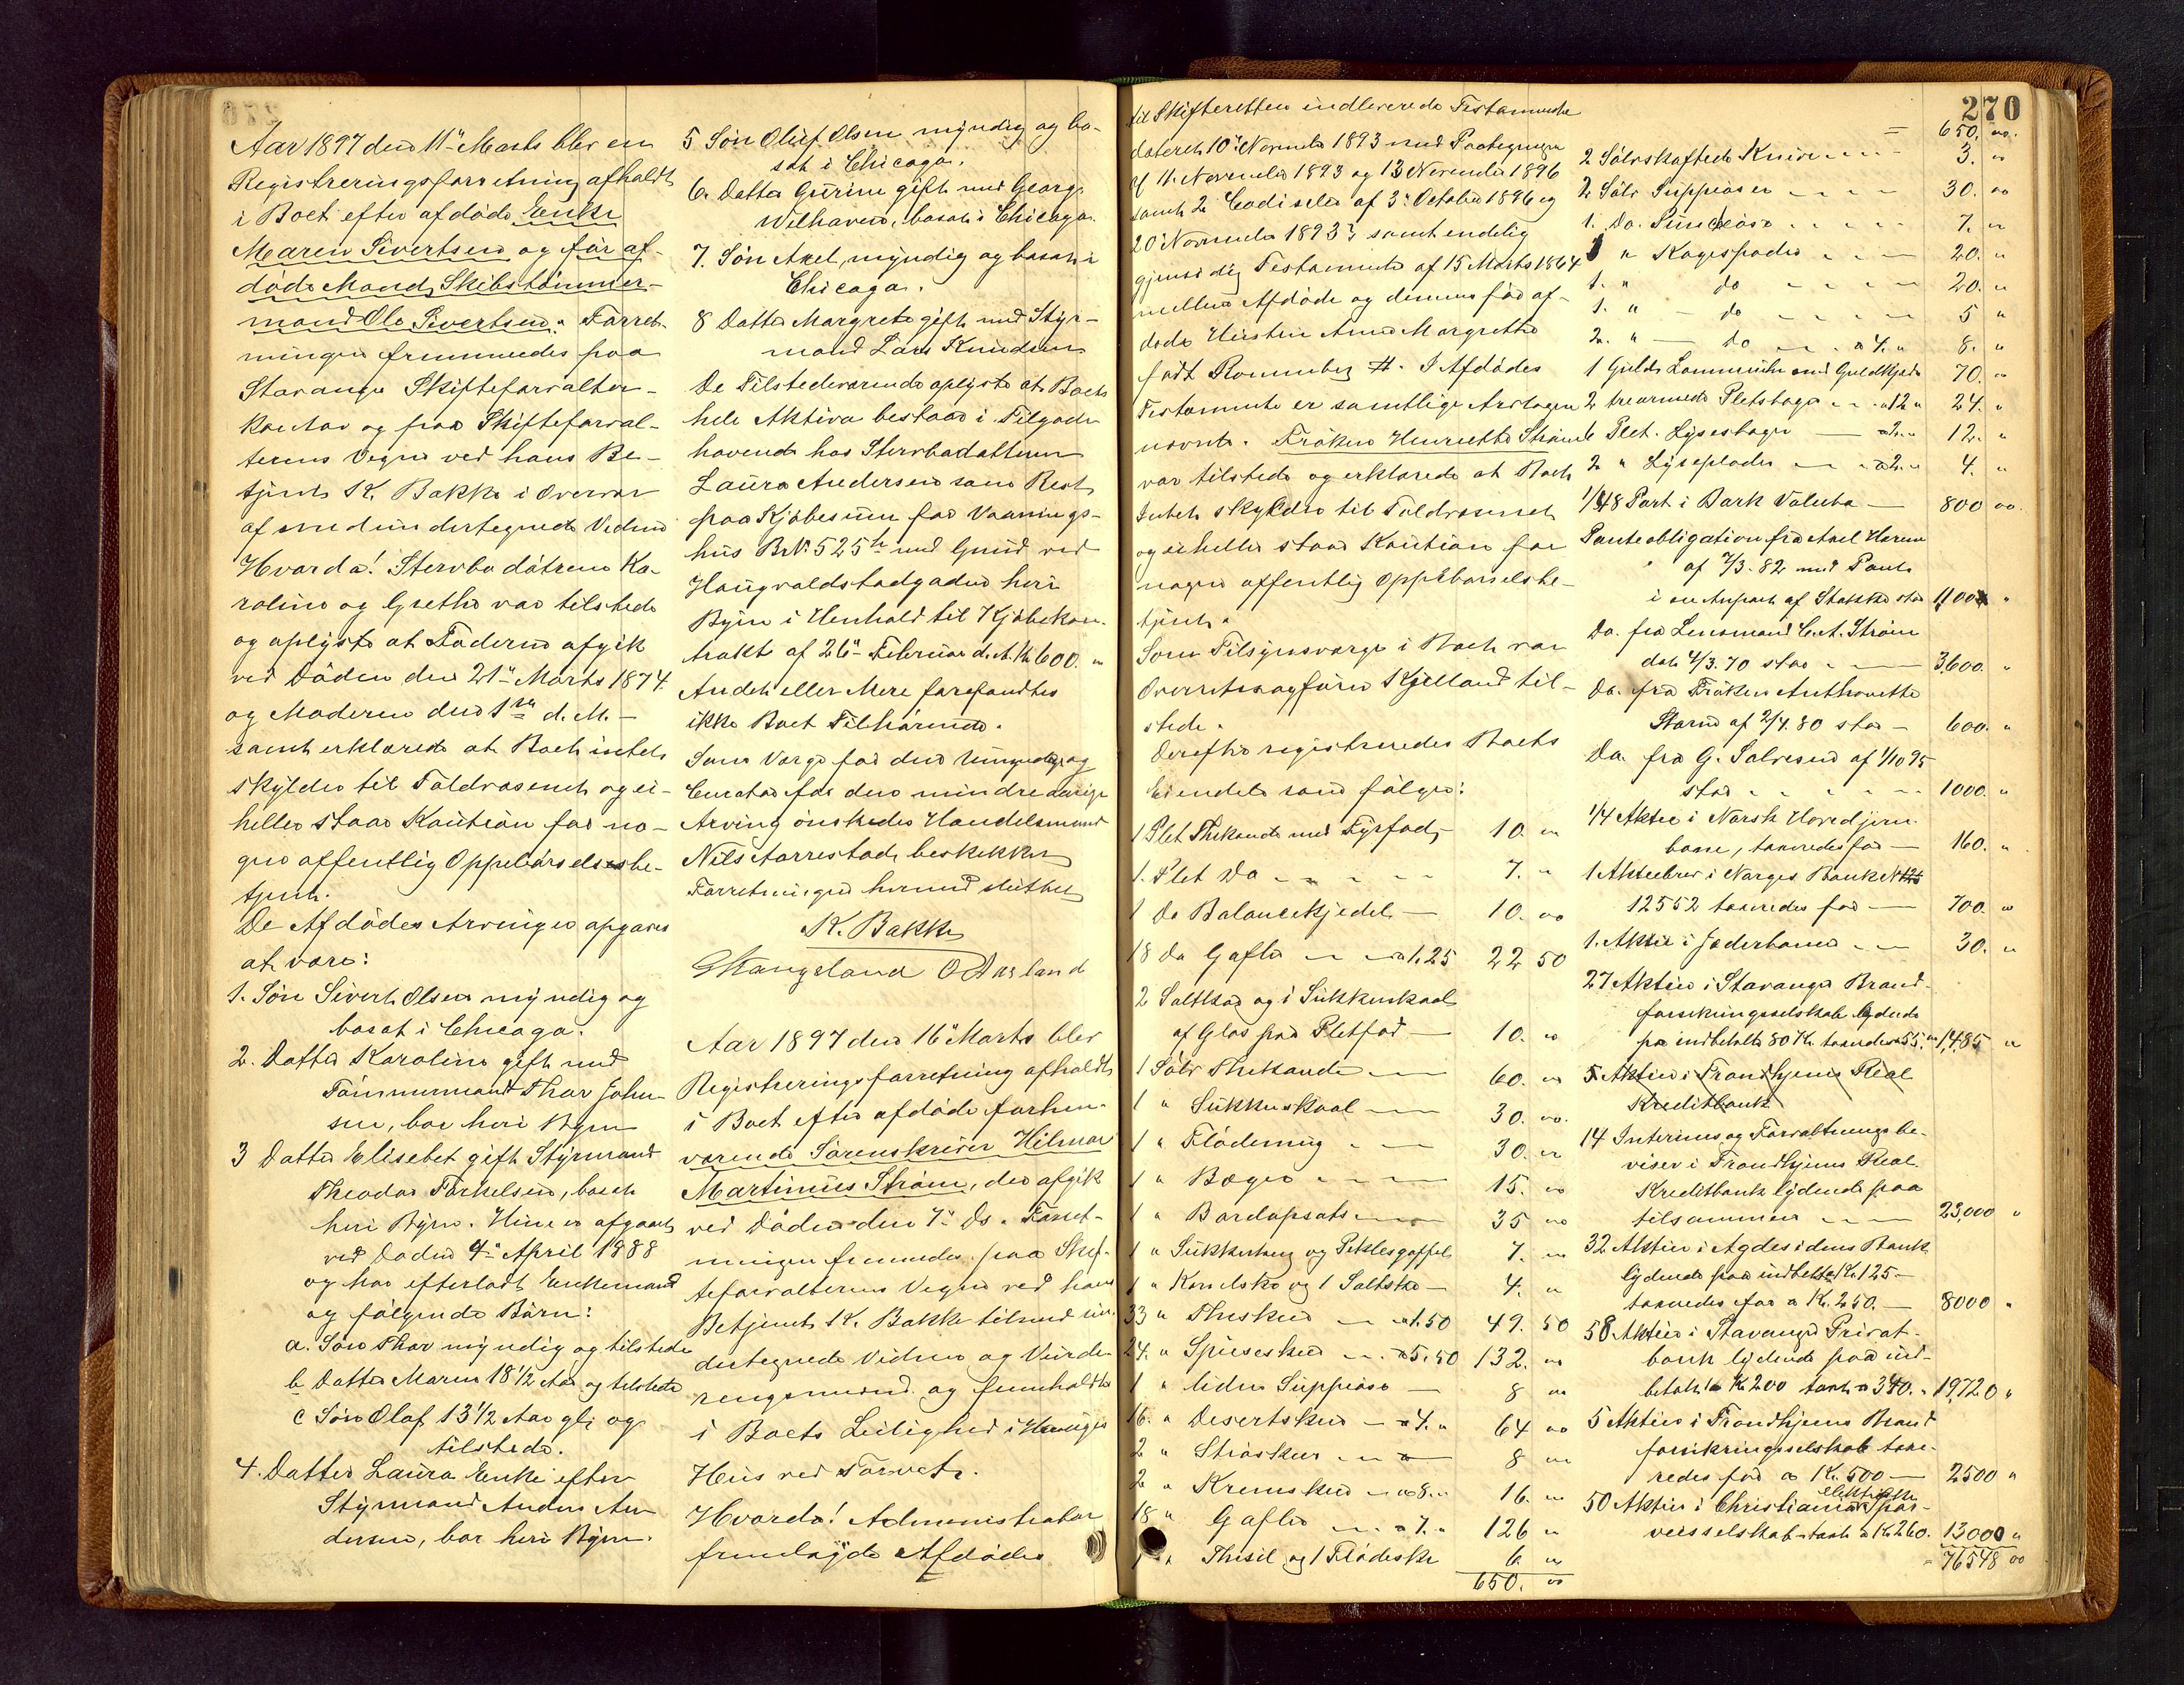 Aar 1897 den 11" Marts blev en
Registreringsforretning afholdt
i Boet efter afdöde Enke
Maren Sivertsen og før af-
döde Mand Skibstömmer-
mand Ole Sivertsen. Forret-
ningen fremmedes paa
Stavanger Skifteforvalter-
kontor og paa Skifteforval-
terens Vegne ved hans Be-
tjent K. Bakke i Overvær
af medundertegnede Vidner
Hvorda! Stervbodøtrene Ka-
roline og Grethe var tilstede
og oplyste at Faderen afgik
ved Döden den 21" Marts 1874.
og Moderen den 1ste d. M. –
samt erklærede at Boet intet
skylder til Toldvæsenet og ei-
heller staar Kaution for no-
gen offentlig Oppebørselsbe-
tjent.
De Afdödes Arvinger opgaves
at være:
1. Sön Sivert Olsen myndig og
bosat i Chicago.
2. Datter Karoline gift med
Tömmermand Thor John-
sen, bor heri Byen
3 Datter Elisebet gift Styrmand
Theodor Torkelsen, bosat
heri Byen. Hun er afgaaet
ved Döden 4" April 1888
og har efterladt Enkemand
og fölgende Börn:
a. Sön Thor myndig og tilstede
b Datter Maren 18 1/2 Aar og tilstede
c Sön Olaf 13 1/2 Aar gl. og
tilstede.
4. Datter Laura Enke efter
Styrmand Anders An-
dersen, bor heri Byen.
5 Sön Oluf Olsen myndig og bo-
sat i Chicago.
6. Datter Gurine gift med Georg
Wilhaven, bosat i Chicago.
7. Sön Axel, myndig og bosat i
Chicago.
8 Datter Margrete gift med Styr-
mand Lars Knudsen
De Tilstedeværende oplyste at Boets
hele Aktiva bestaar i Tilgode-
havende hos Stervbodatteren
Laura Andersen som Rest
paa Kjöbesum for Vaanings-
hus B.No. 525 h med Grund ved
Haugvaldstadgaden heri
Byen i Henhold til Kjöbekon-
trakt af 26" Februar d. A. Kr. 600. "
Andet eller Mere forefandtes
ikke Boet Tilhörende.
Som Værge for den Umyndige og
Curator for den mindreaarige
Arving önskedes Handelsmand
Nils Aarrestad beskikket
Forretningen hermed sluttet
K. Bakke
GHangeland O Aarsland
Aar 1897 den 16" Marts blev
Registreringsforretning afholdt
i Boet efter afdöde forhen-
værende Sorenskriver Hilmar
Martinius Ström, der afgik
ved Döden den 7" Ds. Forret-
ningen fremmedes paa Skif-
teforvalterens Vegne ved hans
Betjent K. Bakke tilmed un-
dertegnede Vidner og Vurde-
ringsmænd og fremholdtes
i Boets Leilighed i
Hus ved Torvet.
Hvorda! Administrator
fremlagde Afdödes
270
til Skifteretten indleverede Testamente
dateret 10" November 1893 med Paategninger
af 11. November 1893 og 13 November 1896
samt 2 Codiseler af 3" October 1896 og
20" November 1893, samt endelig
gjensidig Testamente af 15 Marts 1864
mellem Afdöde og dennes før af-
döde Hustru Anne Margrethe
født Ronneberg #. I Afdödes
Testamente er samtlige Arvtagere
nævnte. Fröken Henriette Ström
var tilstede og erklærede at Boet
Intet skylder til Toldvæsenet
og eiheller staar Kaution for
nogen offentlig Oppebörselsbe-
tjent.
Som Tilsynsværge i Boet var
Overretssagförer Kjelland til-
stede.
Derefter registreredes Boets
Eiendele som fölger:
1 Plet Thekande med Fyrfad, 10. "
1. Plet Do – – – 7. "
1 Do Balancekjedel – 10. "
18 Do Gafler – – a 1.25 22 50
2 Saltkar og 1 Sukkerskaal
af Glas paa Pletfod – 10. "
1 Sölv Thekande – 60. "
1 " Sukkerskaal – 30. "
1 " Flödemug – – 30. "
1 " Bæger – – 15. "
1 " Bordopsats – – 35 "
1 " Sukkertang og Peklesgaffel 7. "
1 " Kandiske og 1 Saltske – 4. "
33 " Theskeer – a 1.50 49. 50
24. " Spiseskeer – a 5.50 132. "
1 " liden Suppeöse – 8 "
16. " Desertskeer – a 4. " 64 "
2 " Ströskeer – 8 "
2 " Kremskeer – a 8. " 16. "
18 " Gafler – a 7. " 126 "
1 " Thesil og 1 Flödeske 6 "
650. "
= 650. "
2 Sölvskaftede Knive – – 3. "
2 Sölv Suppeöser – – – 30. "
1. Do. – – – 7. "
1 " Kagespader – – 20. "
1. " do – – – 20. "
1. " – do – – – 5 "
2. " – do – – a 4. " 8. "
1 Guld Lommeuhr med Guldkjæde 70. "
2 trearmede Pletstager – a 12 " 24. "
6 Plet. Lysestager – a 2. " 12. "
2 " Lyseplader – a 2. " 4. "
1/48 Part i Bark Valuta – 800 "
Panteobligation fra Axel Herem
af 7/3. 82 med Pant
i en Anpart af Stokke stor 1,100 "
Do. fra Lensmand C. A. Ström
dat. 4/3. 70 stor – – 3,600. "
Do. fra Fröken Anthonette
Storm af 2/4. 80 stor – 600. "
Do. fra G. Salvesen af 1/10 95
stor – – – – 1000. "
1/4 Aktie i Norsk Hovedjern-
bane, taxeredes for – 160. "
1 Aktiebrev i Norges Bank No
12552 taxeredes for – 700. "
1. Aktie i Jæderbanen – – 30. "
27 Aktier i Stavanger Brand-
forsikringsselskab lydende
pa indbetalt 80 Kr. taxeredes a 55. " 1,485 "
5 Aktier i Trondhjems Real
Kreditbank
14 Interims og Forvaltningsbe-
viser i Trondhjems Real
Kreditbank lydende paa
tilsammen – – – 23,000 "
32 Aktier i Agdesidens Bank
lydende paa indbetalt Kr. 125 –
taxeredes for a Kr. 250. – 8000 "
58 Aktier i Stavanger Privat-
bank lydende paa ind-
betalt a Kr 200 taxt. a 340. " 19,720 "
5 Aktier i Trondhjems Brand
forsikringsselskab taxe-
redes for a Kr. 500 – 2500 "
elektriske
50 Aktier i Christiania Spor-
veisselskab taxt. a Kr 260. 13000 "
= 76548 "